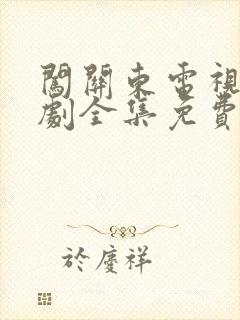 闖關東電視
劇全集免費
於慶祥